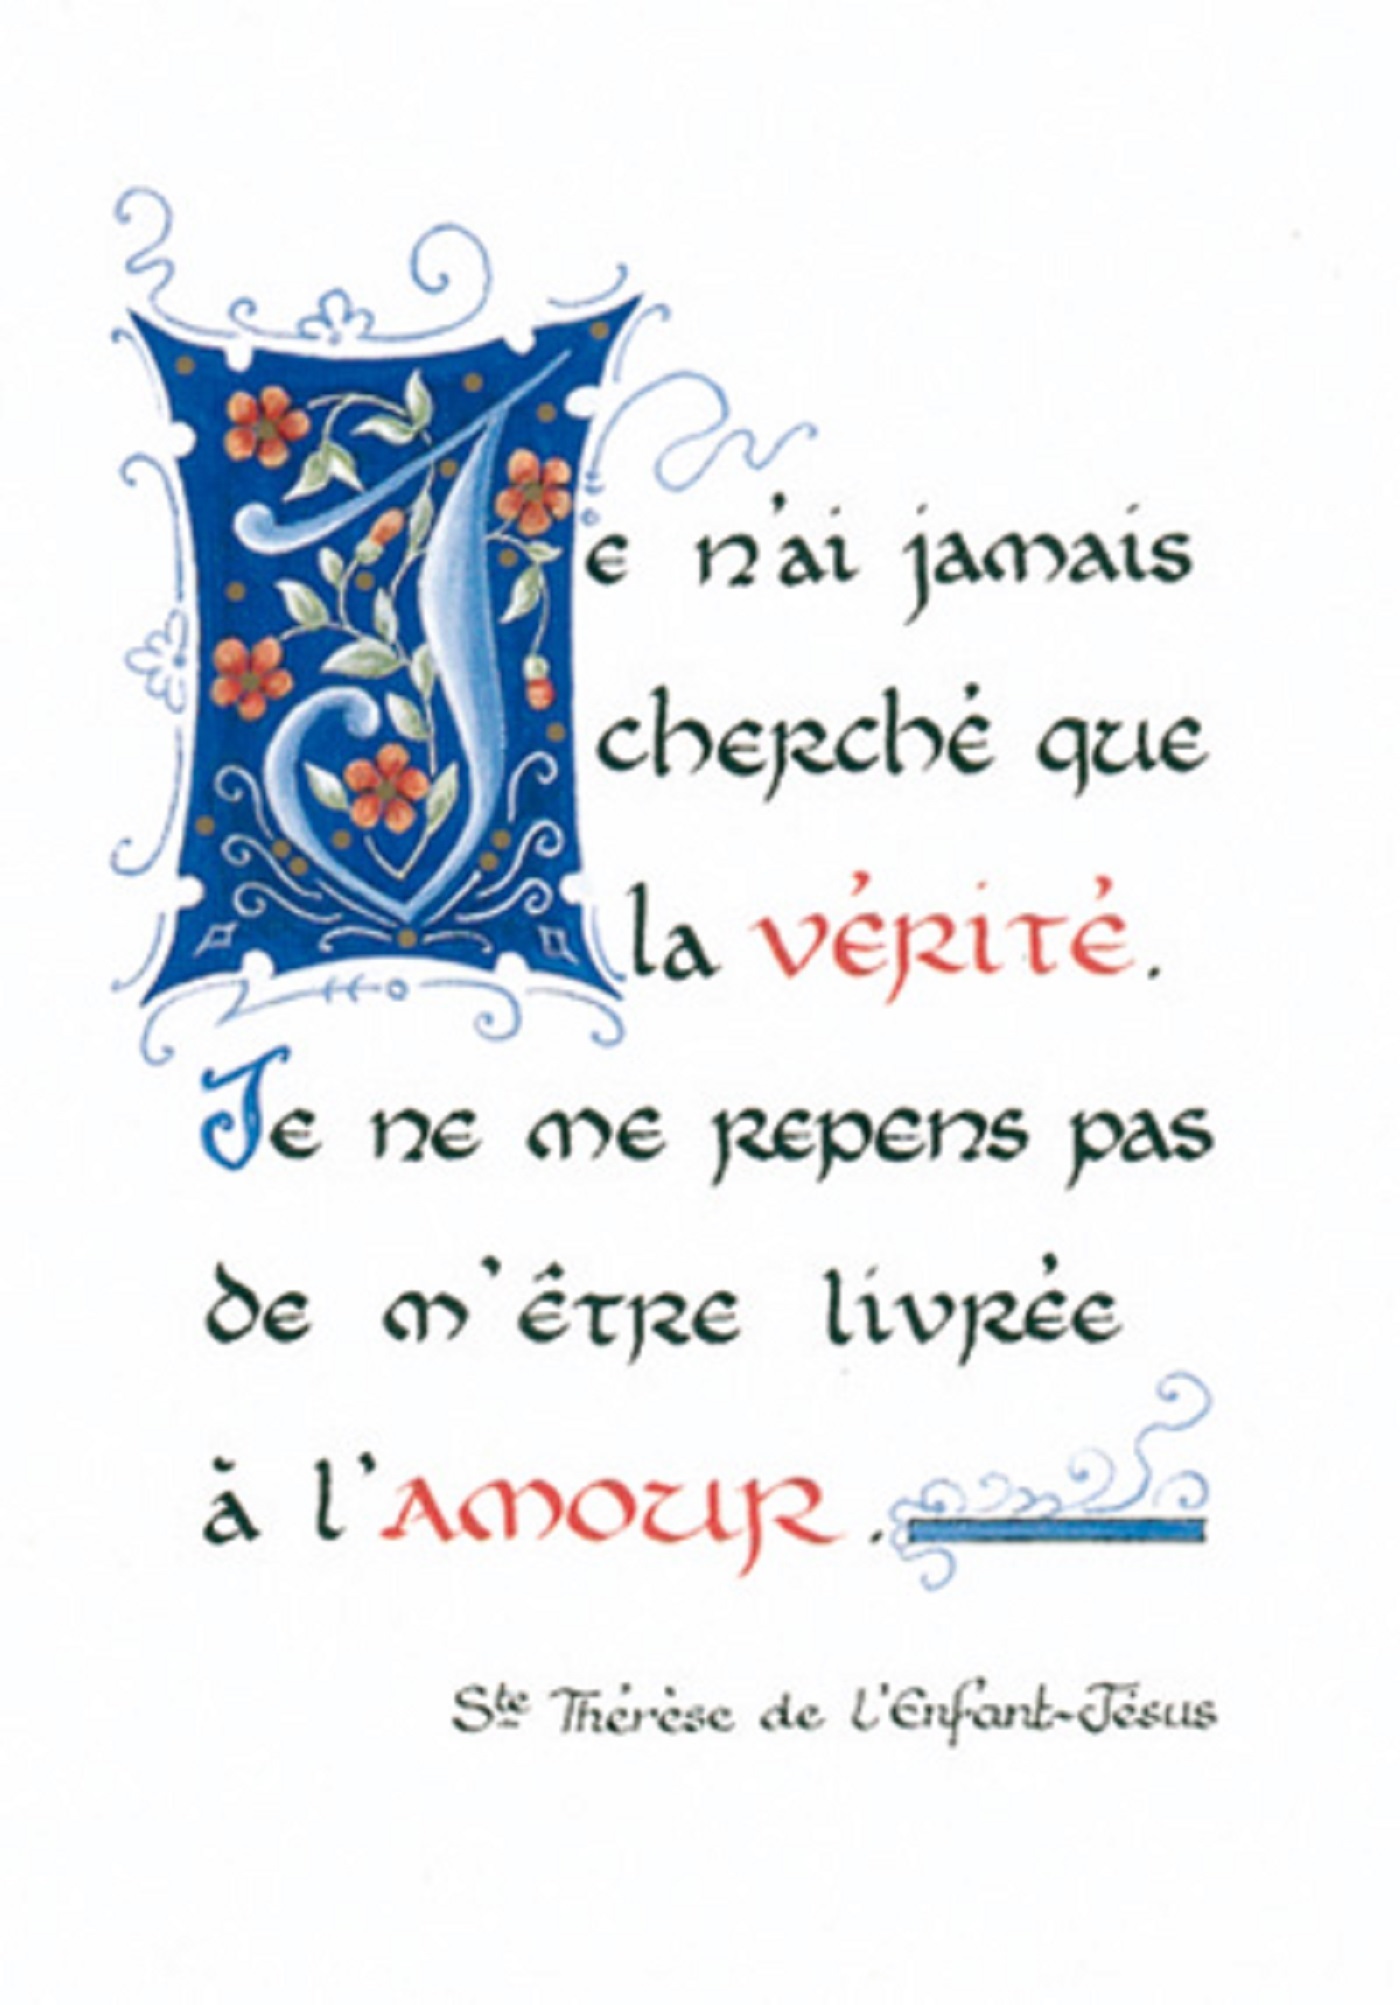 Je n'ai jamais
cherché que
la vérité.
Je ne me repens pas
de m'être livrée
à l'AMOUR.
Ste Thérèse de l'Enfant-Jésus